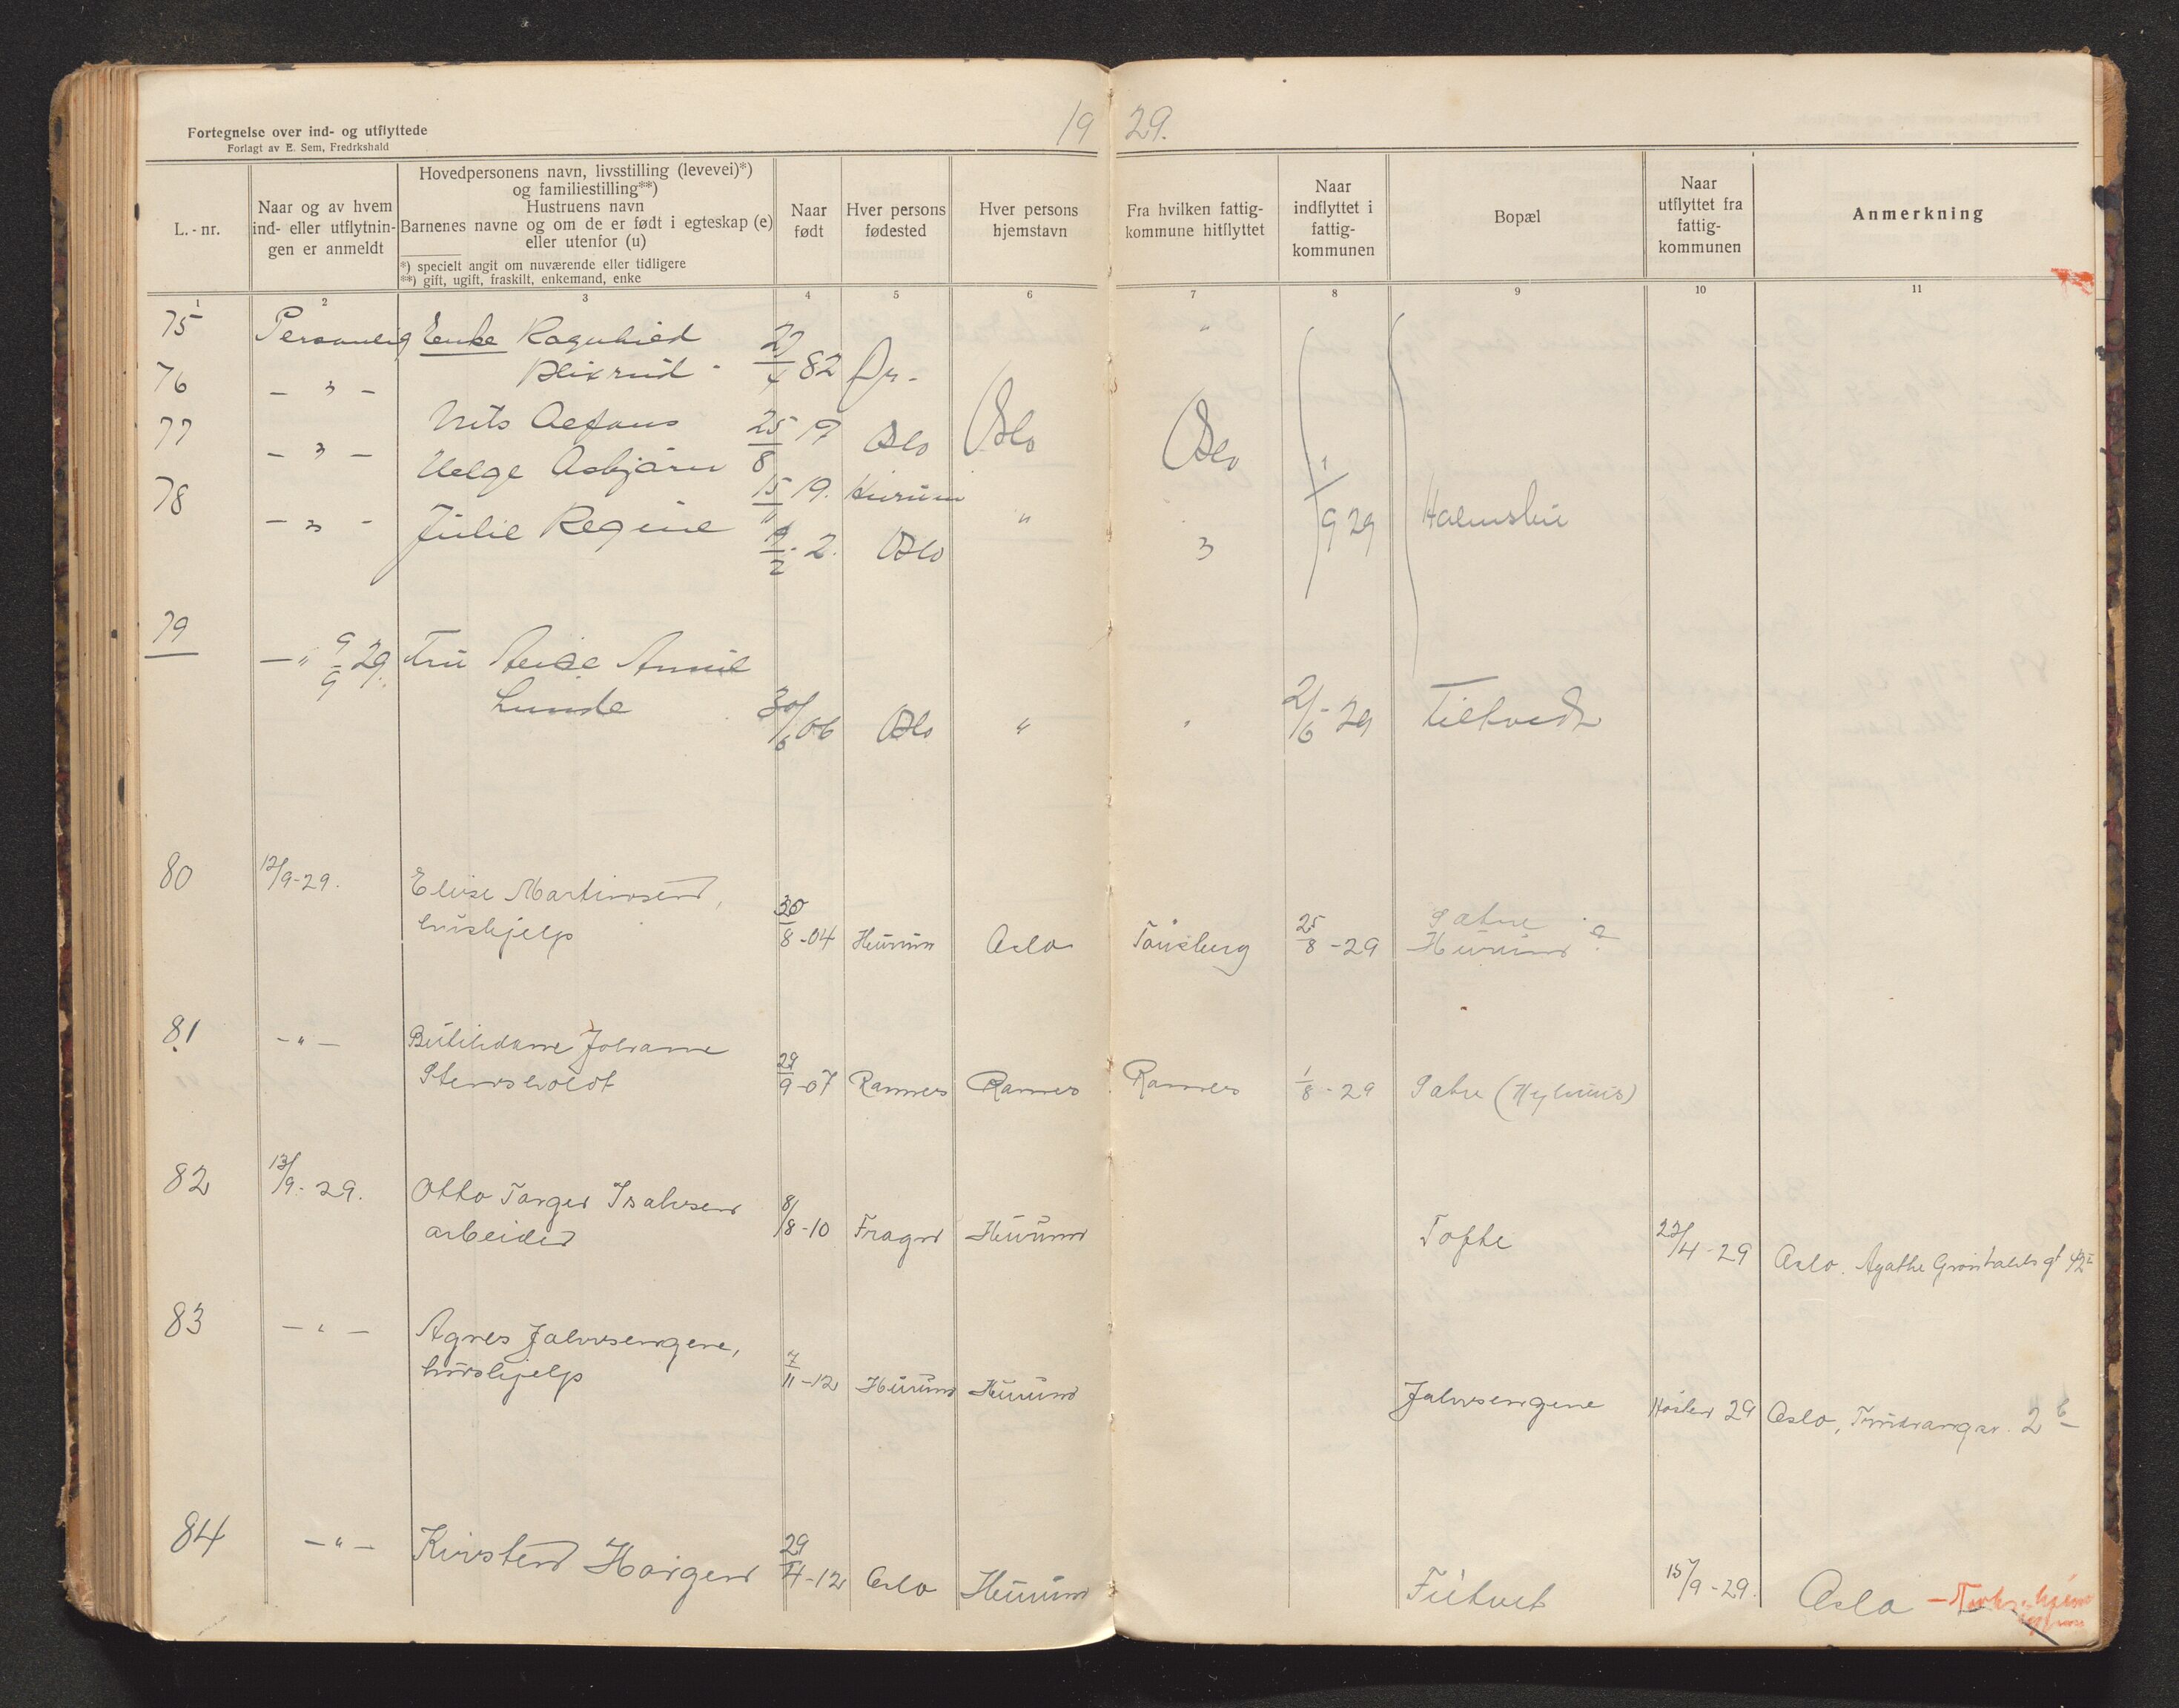 Fortegnelse over ind- og utflyttede
Forlagt av E. Sem, Fredrkshald
19 29.
L.-nr.
Naar og av hvem
ind- eller utflytnin-
gen er anmeldt
Hovedpersonens navn, livsstilling (levevei)*)
og familiestilling**)
Hustruens navn
Barnenes navne og om de er født i egteskap (e)
eller utenfor (u)
*) specielt angit om nuværende eller tidligere
**) gift, ugift, fraskilt, enkemand, enke
Naar
født
Hver persons
fødested
Hver persons
hjemstavn
Fra hvilken fattig-
kommune hitflyttet
Naar
indflyttet i
fattig-
kommunen
Bopæl
Naar
utflyttet fra
fattig-
kommunen
Anmerkning
1 2 3 4 5 6 7 8 9 10 11
75 Personlig Enke Ragnhild "
76 - " - Blixrud 82 Dr.
77 - " - Nils 25/8 19 Oslo Oslo Oslo
78 - " - Helge Asbjørn 15/11 19. Hurum " 1/9 29 Holmsbu
Julie Regine 19/2 - 2. Oslo "
79 - " 9/9 29. Fru Annie
Lunde 30/6 06 Oslo " " 2/6 - 29 Filtvedt
80 12/9-29. Elise Martinsen,
hushjelp 30/8-04 Hurum Oslo Tönsberg 25/8-29 Sætre
Hurum ?
81 - " - Butikdame Johanne
Stensholdt 29/9-07 Ramnes Ramnes Ramnes 1/8-29 Sætre (Nyhuus)
82 13/9-29. Otto Torger Isaksen
arbeider 8/8-10 Fragn Hurum Tofte 22/4-29 Oslo. Agathe Grøndahls gt 42
83 - " - Agnes Johnsengene,
hushjelp 7/11-12 Hurum Hurum Johnsengene Høsten 29 Oslo, 2 b
84 - " - Kirsten Haugen 29/4-12 Oslo Hurum Filtvet 15/9-29. Oslo